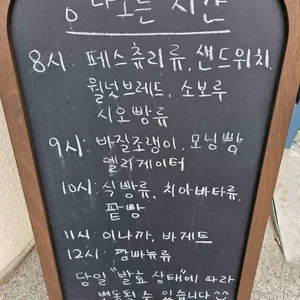 빵 나오는 시간
8시: 페스츄리류, 샌드위치,
월넛브레드, 소보루
시오빵류
9시: 바질조랭이, 모닝빵
엘리게이터
10시: 식빵류, 치아바타류,
팥빵
11시: 이나까, 바게트
12시: 깜빠뉴류
당일 "발효 상태"에 따라
변동될 수 있습니다